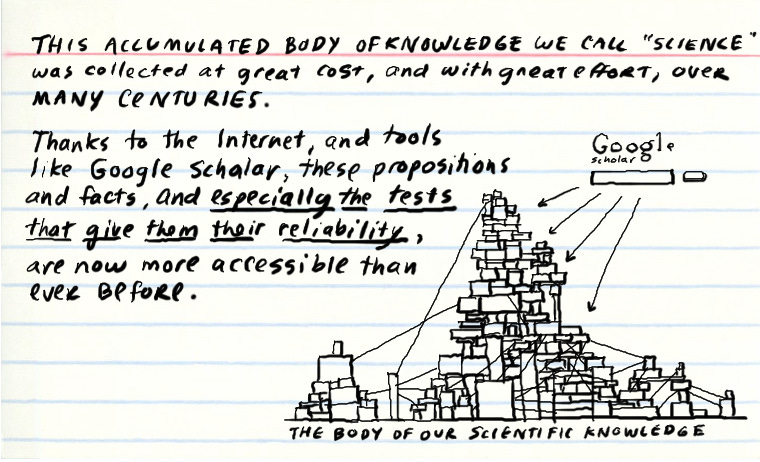 THIS ACCUMULATED BODY OF KNOWLEDGE WE CALL "SCIENCE"
was collected at great cost, and with great effort, over
MANY CENTURIES.
Thanks to the Internet, and tools
like Google Scholar, these propositions
and facts, and especially the tests
that give them their reliability,
are now more accessible than
ever Before.
Google
scholar
THE BODY OF OUR SCIENTIFIC KNOWLEDGE